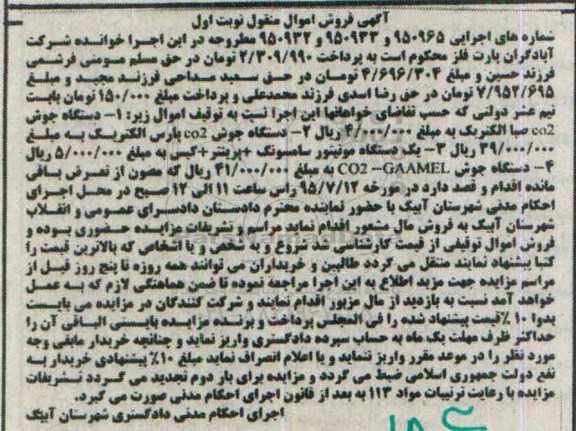 آگهی فروش اموال منقول نوبت اول
شماره های اجرایی ۹۵۰۹۶۵ و ۹۵۰۹۳۳ و ۹۵۰۹۳۲ مطروحه در این اجرا خوانده شرکت
آبادگران پارت فلز محکوم است به پرداخت ۲/۳۰۹/۹۹۰ تومان در حق مسلم مومنی فرشمی
فرزند حسین و مبلغ ۴/۶۹۶/۳۰۴ تومان در حق سعید مداحی فرزند مجید و مبلغ
۷/۹۵۲/۶۹۵ تومان در حق رضا اسدی فرزند محمدعلی و پرداخت مبلغ ۱۵۰/۰۰۰ تومان بابت
نیم عشر دولتی که حسب تقاضای خواهانها این اجرا نسبت به توقیف اموال زیر: ۱- دستگاه جوش
co2 صبا الکتریک به مبلغ ۴/۰۰۰/۰۰۰ ریال ۲- دستگاه جوش co2 پارس الکتریک به مبلغ
۳۹/۰۰۰/۰۰۰ ریال ۳- یک دستگاه مونیتور سامسونگ +پرینتر+کیس به مبلغ ۵/۰۰۰/۰۰۰ ریال
۴- دستگاه جوش CO2 –GAAMEL به مبلغ ۴۱/۰۰۰/۰۰۰ ریال که مصون از تعرض باقی
مانده اقدام و قصد دارد در مورخه ۹۵/۷/۱۲ راس ساعت ۱۱ الی ۱۲ صبح در محل اجرای
احکام مدنی شهرستان آبیک با حضور نماینده محترم دادستان دادسرای عمومی و انقلاب
شهرستان آبیک به فروش مال مشعور اقدام نماید مراسم و تشریفات مزایده حضوری بوده و
فروش اموال توقیفی از قیمت کارشناسی شد شروع و به شخص و یا اشخاص که بالاترین قیمت را
کتبا پیشنهاد نمایند منتقل می گردد طالبین و خریداران می توانند همه روزه تا پنج روز قبل از
مراسم مزایده جهت مزید اطلاع به این اجرا مراجعه نموده تا ضمن هماهنگی لازم که به عمل
خواهد آمد نسبت به بازدید از مال مزبور اقدام نمایند و شرکت کنندگان در مزایده می بایست
بدوا ۱۰ ٪قیمت پیشنهاد شده را فی المجلس پرداخت و برنده مزایده بایستی الباقی آن را
حداکثر ظرف مهلت یک ماه به حساب سپرده دادگستری واریز نماید و چنانچه خریدار مابقی وجه
مورد نظر را در موعد مقرر واریز ننماید و یا اعلام انصراف نماید مبلغ ۱۰٪ پیشنهادی خریدار به
نفع دولت جمهوری اسلامی ضبط می گردد و مزایده برای بار دوم تجدید می گردد تشریفات
مزایده با رعایت ترتیبات مواد ۱۱۳ به بعد از قانون اجرای احکام مدنی صورت می گیرد.
اجرای احکام مدنی دادگستری شهرستان آبیک